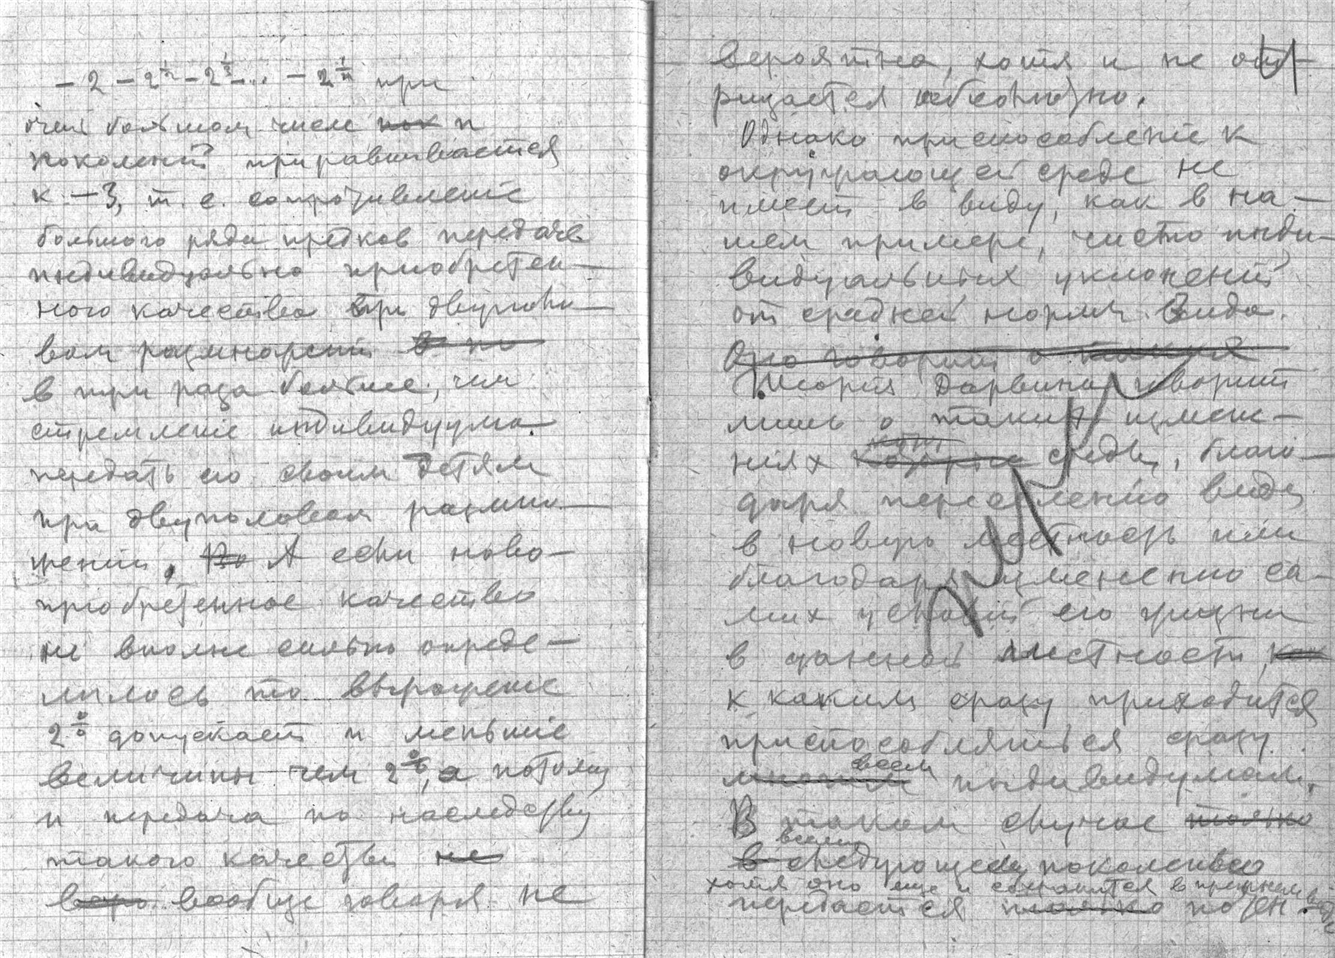 − 2 − 2½ − 2⅓ − ... − 2^{1/n} при
очень большом числе пок n
поколений приравнивается
к − 3, т. е. сопротивление
большого ряда предков передаче
индивидуально приобретен-
ного качества при двуполо
вом размножении в по
в три раза больше, чем
стремление индивидуума
передать его своим детям
при двуполовом размно-
жении. Но А если ново-
приобретенное качество
не вполне сильно опреде-
лилось то выражение
2 допускает и меньшие
величины чем 2, а потому
и передача по наследству
такого качества не
вообще говоря не
вероятна, хотя и не от-
рицается абсолютно.
Однако приспособление к
окружающей среде не
имеет в виду, как в на-
шем примере, чисто инди-
видуальных уклонений
от средней нормы вида.
Оно говорит о таких
Теория Дарвина говорит
лишь о таких измене-
ниях среды, благо-
даря переселению вида
в новую местность или
благодаря изменению са-
мих условий его жизни
в данной местности,
к каким сразу приходится
приспособляться сразу
всем
многим индивидуумам.
В таком случае только
всему
в следующему поколению
хотя оно еще и сохранится в прежнем
передается